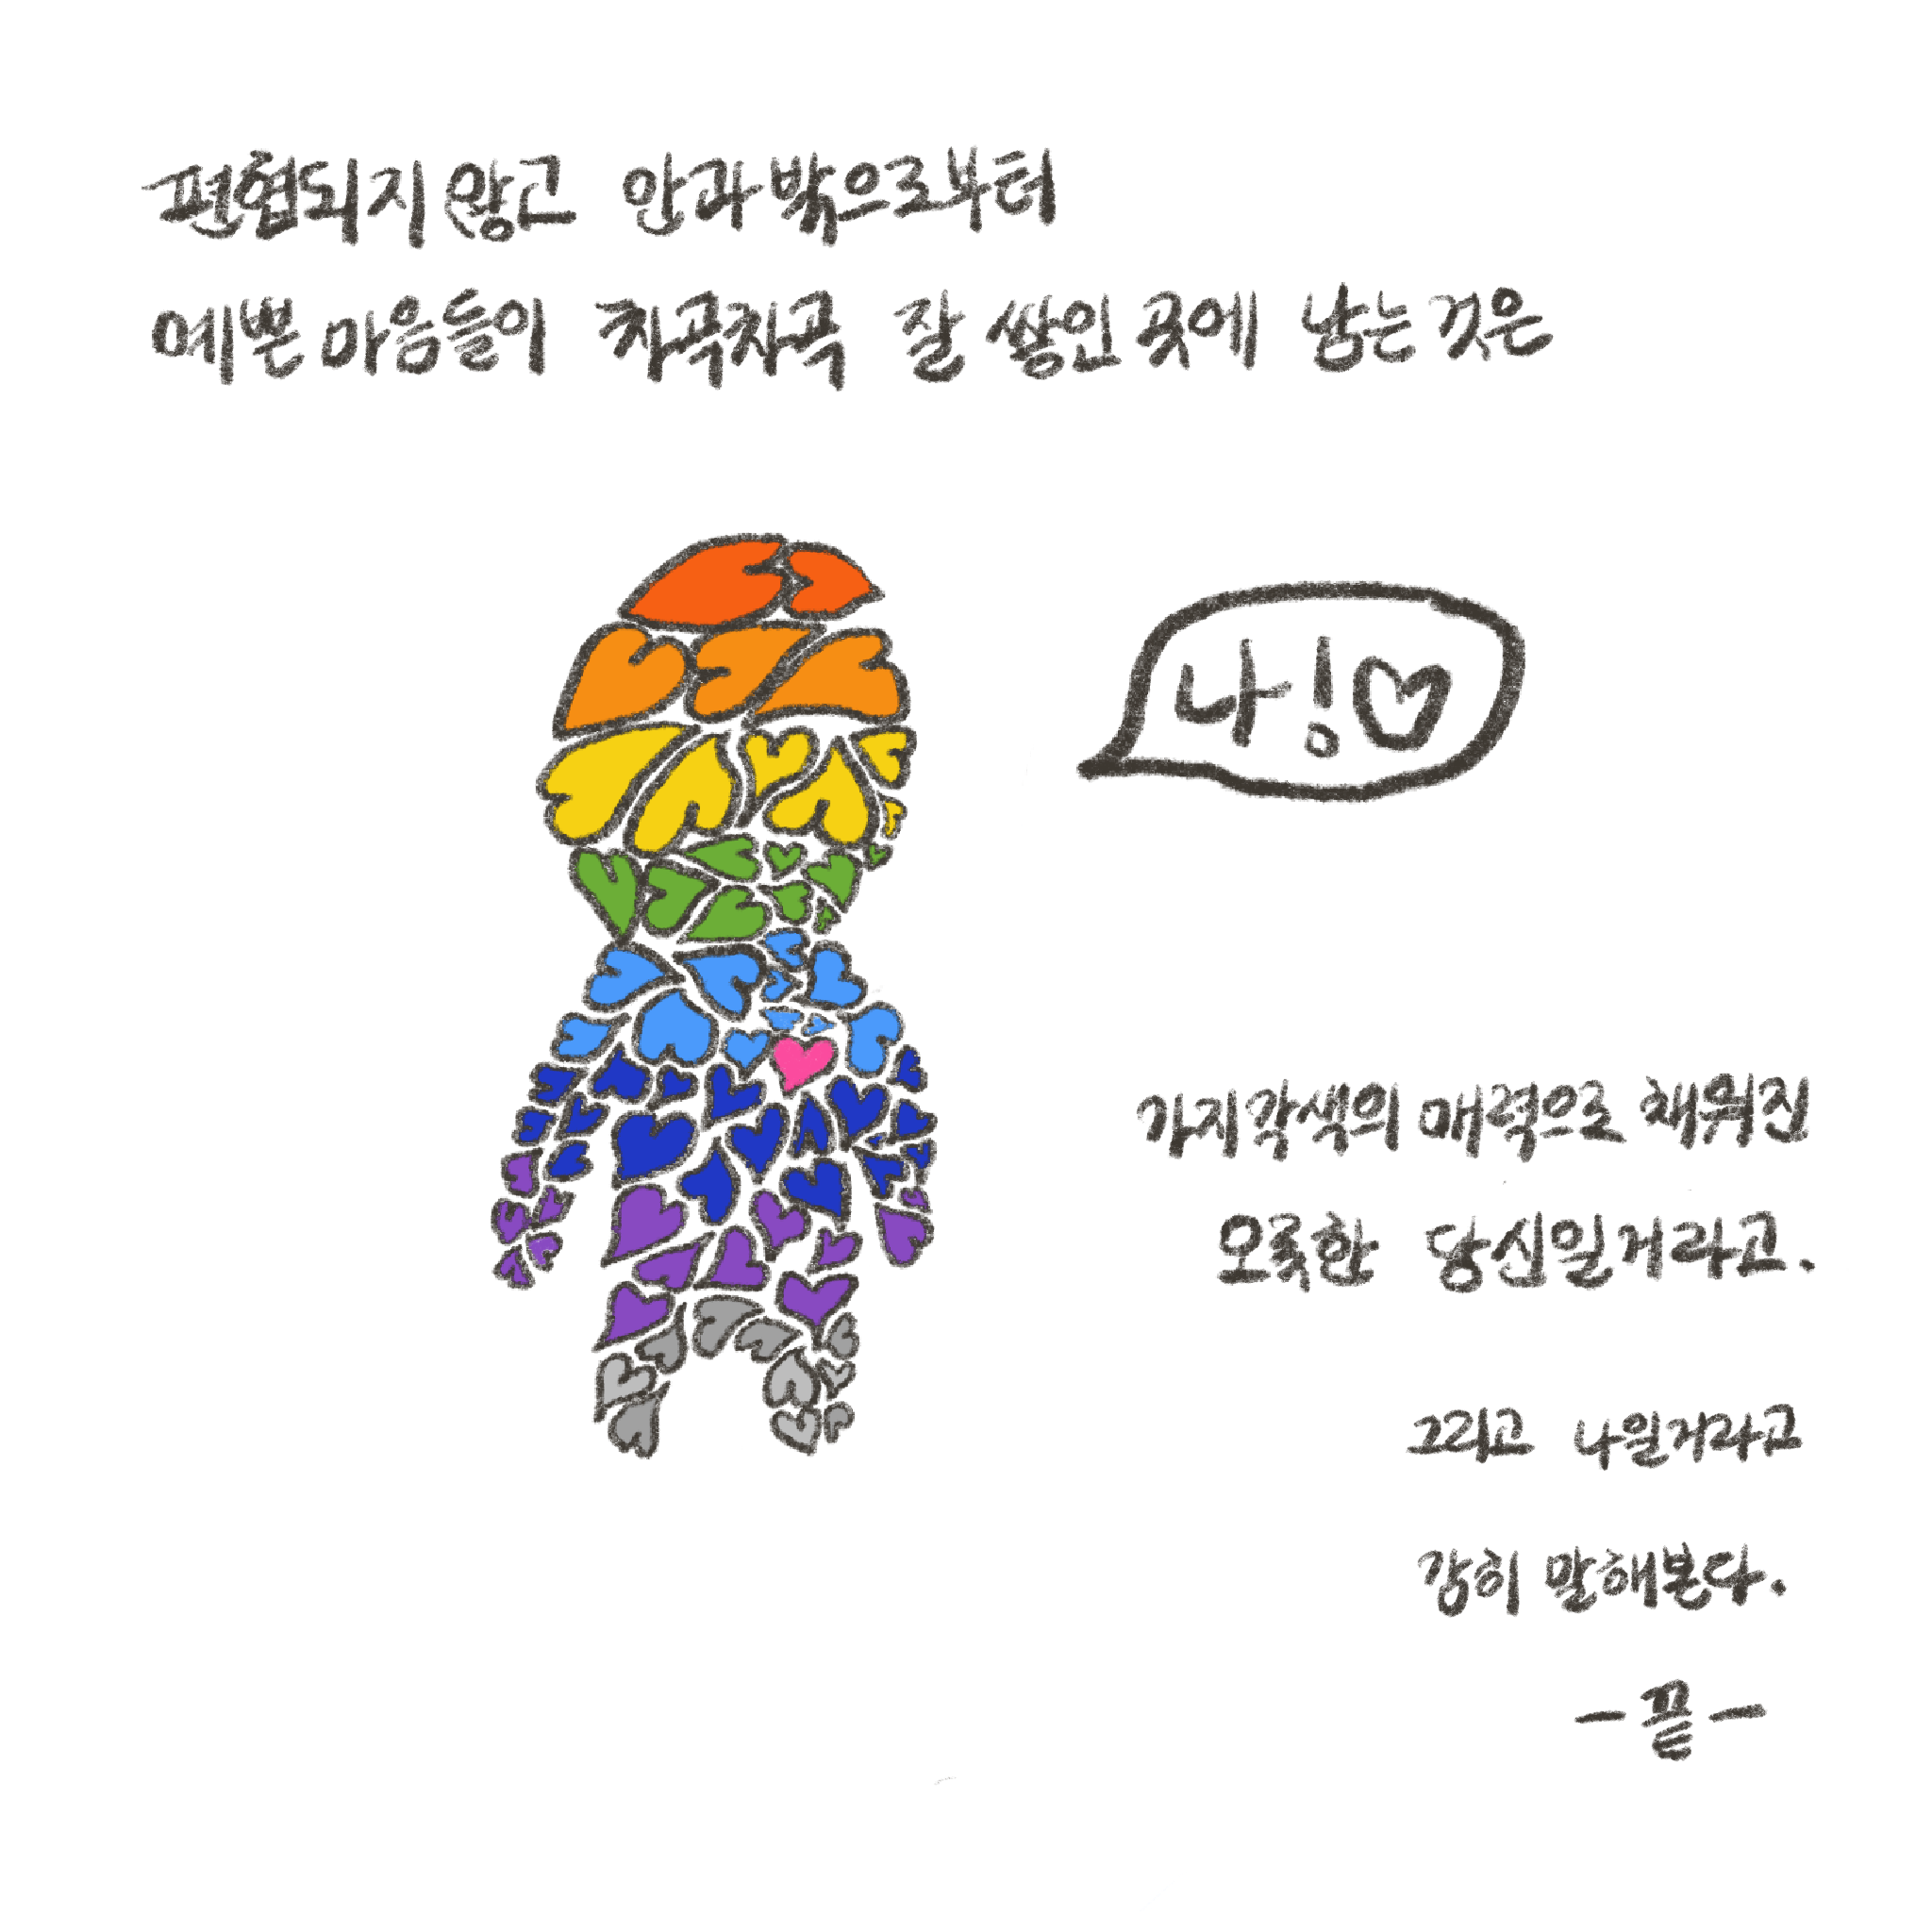 편협되지 않고 안과 밖으로부터
예쁜 마음들이 차곡차곡 잘 쌓인 곳에 남는 것은
나!♡
가지각색의 매력으로 채워진
오롯한 당신일거라고.
그리고 나일거라고
감히 말해본다.
-끝-